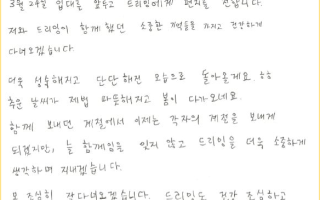 3월 24일 입대를 앞두고 드리밍에게 편지를 전합니다.
저와 드리밍이 함께 했던 소중한 기억들을 가지고 건강하게
다녀오겠습니다.
더욱 성숙해지고 단단해진 모습으로 돌아올게요.
추운 날씨가 제법 따뜻해지고 봄이 다가오네요.
함께 보내던 계절에서 이제는 각자의 계절을 보내게
되겠지만, 늘 함께임을 잊지 않고 드리밍을 더욱 소중하게
생각하며 지내겠습니다.
몸 조심히 잘 다녀오겠습니다. 드리밍도 건강 조심하고